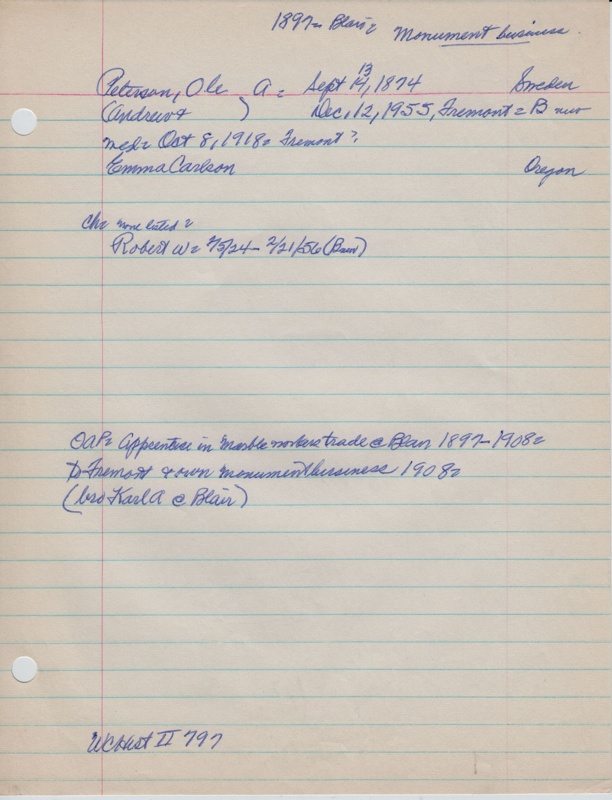 1897- Blair= Monument business
13
Peterson, Ole A= Sept 14, 1874 Sweden
(Andrew & ) Dec, 12, 1955, Fremont = B
med= Oct 8, 1918= Fremont?
Emma Carlson Oregon
ch= none listed=
Robert W= 7/5/24- 2/21/56 (B)
OAP= Apprentice in marble workers trade @ Blair 1897-1908=
to Fremont & own monument business 1908=
(bro Karl A @ Blair)
WCHist II 797